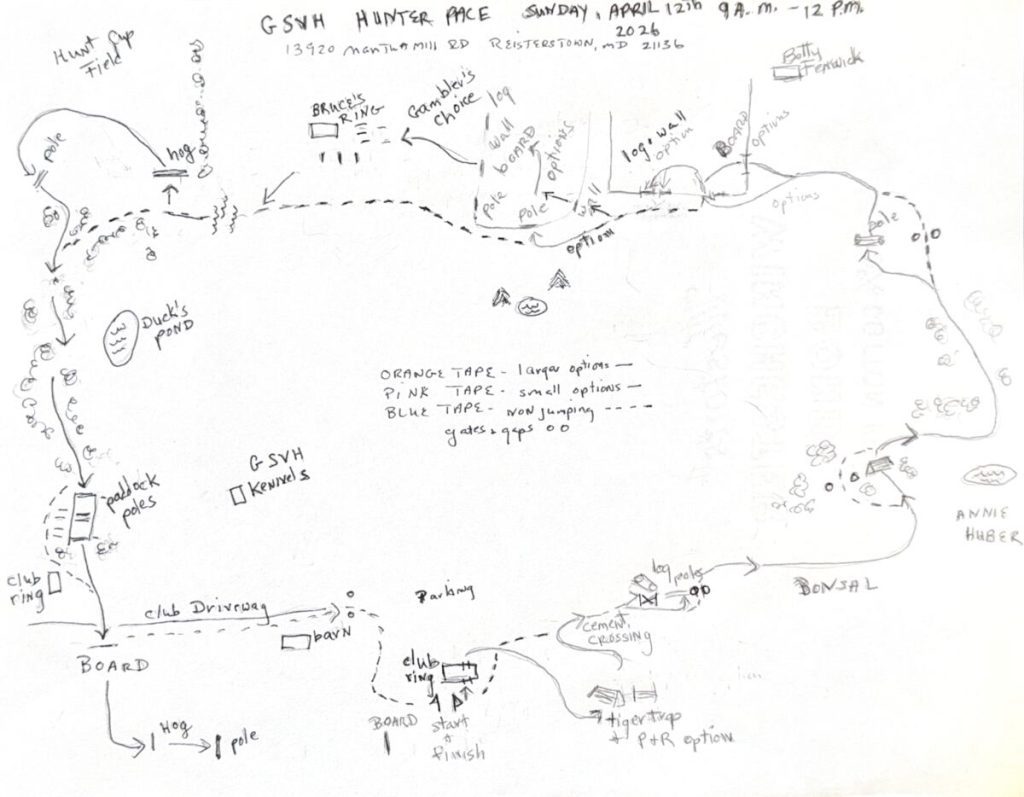 GSVH HUNTER PACE SUNDAY, APRIL 12th 9 A.M. - 12 P.M.
2026
13920 Mantua Mill RD REISTERSTOWN, MD 21136
Hunt Cup
Field
Betty
Fenwick
BRUCE'S
RING
Gambler's
choice
log
wall
BOARD
pole
options
pole
wall
option
log & wall
option
BOARD
options
options
pole
pole
hog
Duck's
POND
ORANGE TAPE - larger options —
PINK TAPE - small options —
BLUE TAPE - non jumping ----
gates & gaps o o
GSVH
Kennels
paddock
poles
club
ring
ANNIE
HUBER
BONSAL
log poles
cement
CROSSING
Parking
club Driveway
barn
BOARD
club
ring
start
&
finish
BOARD
tiger trap
& P&R option
Hog
pole